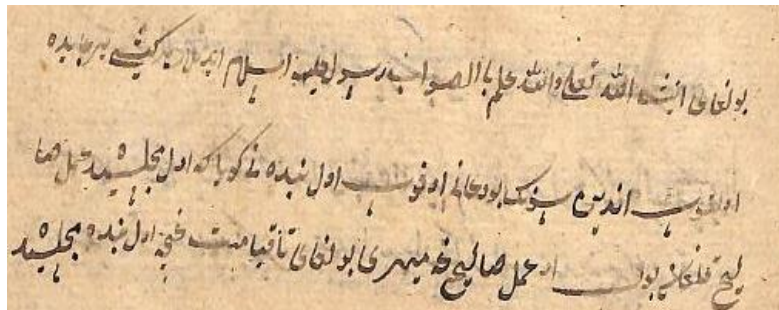 بولغای انشا الله تعلی والله علم با الصواب رسول علیه السلام ایدی کیشی بیر جایده
اولتوروب اندین سونک بو دعانی اوقوب اول بنده نی کویا که اول مجلسیده عمل صا
لیح قیلغان بولوب او عمل صالیح غه میهری بولغای تا قیامت غچه اول بنده مجلسیده